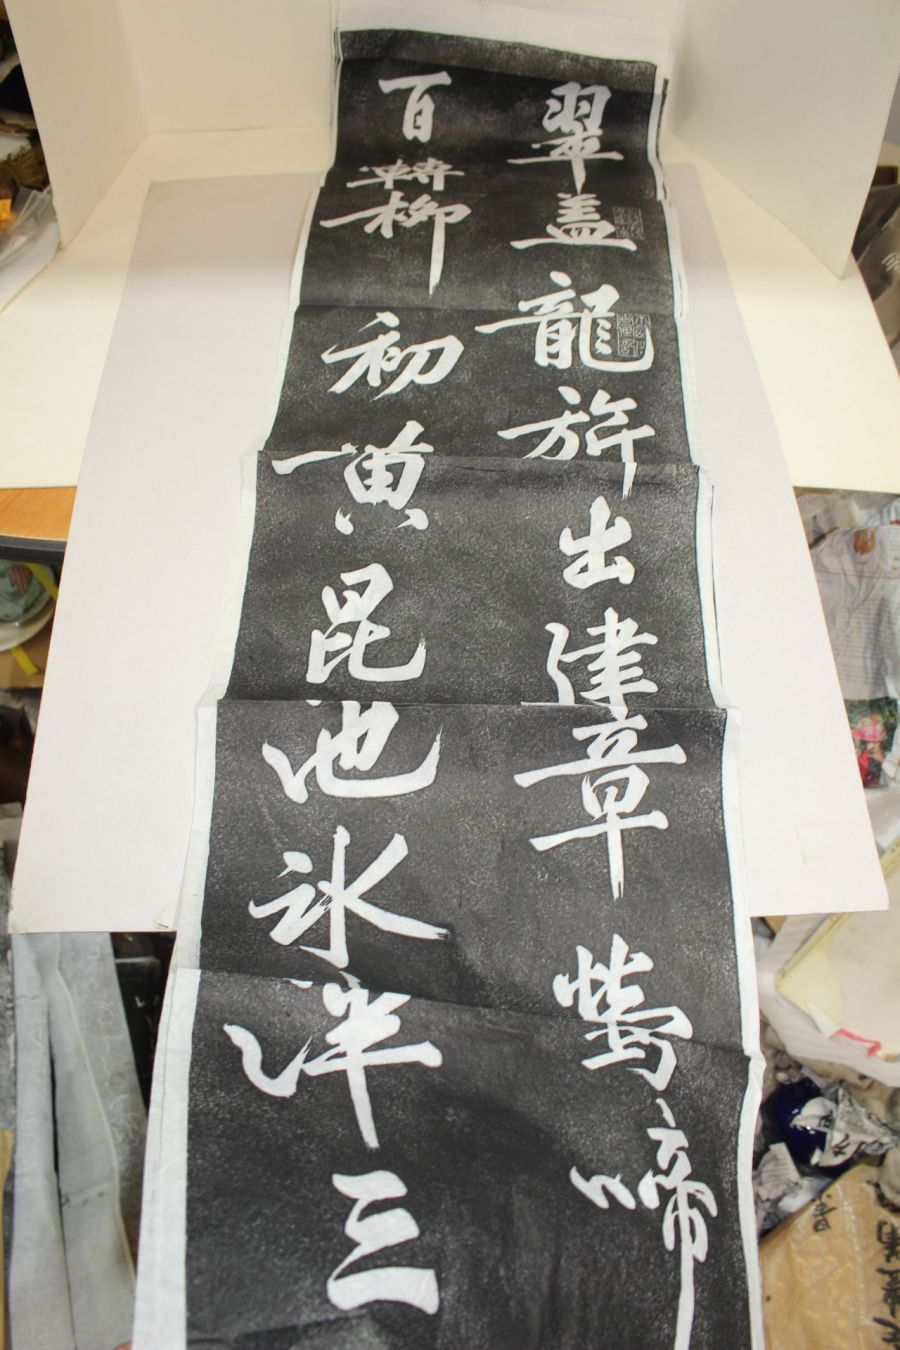 翠盖龍旂出建章鶯啼
百轉柳初黄昆池氷泮三